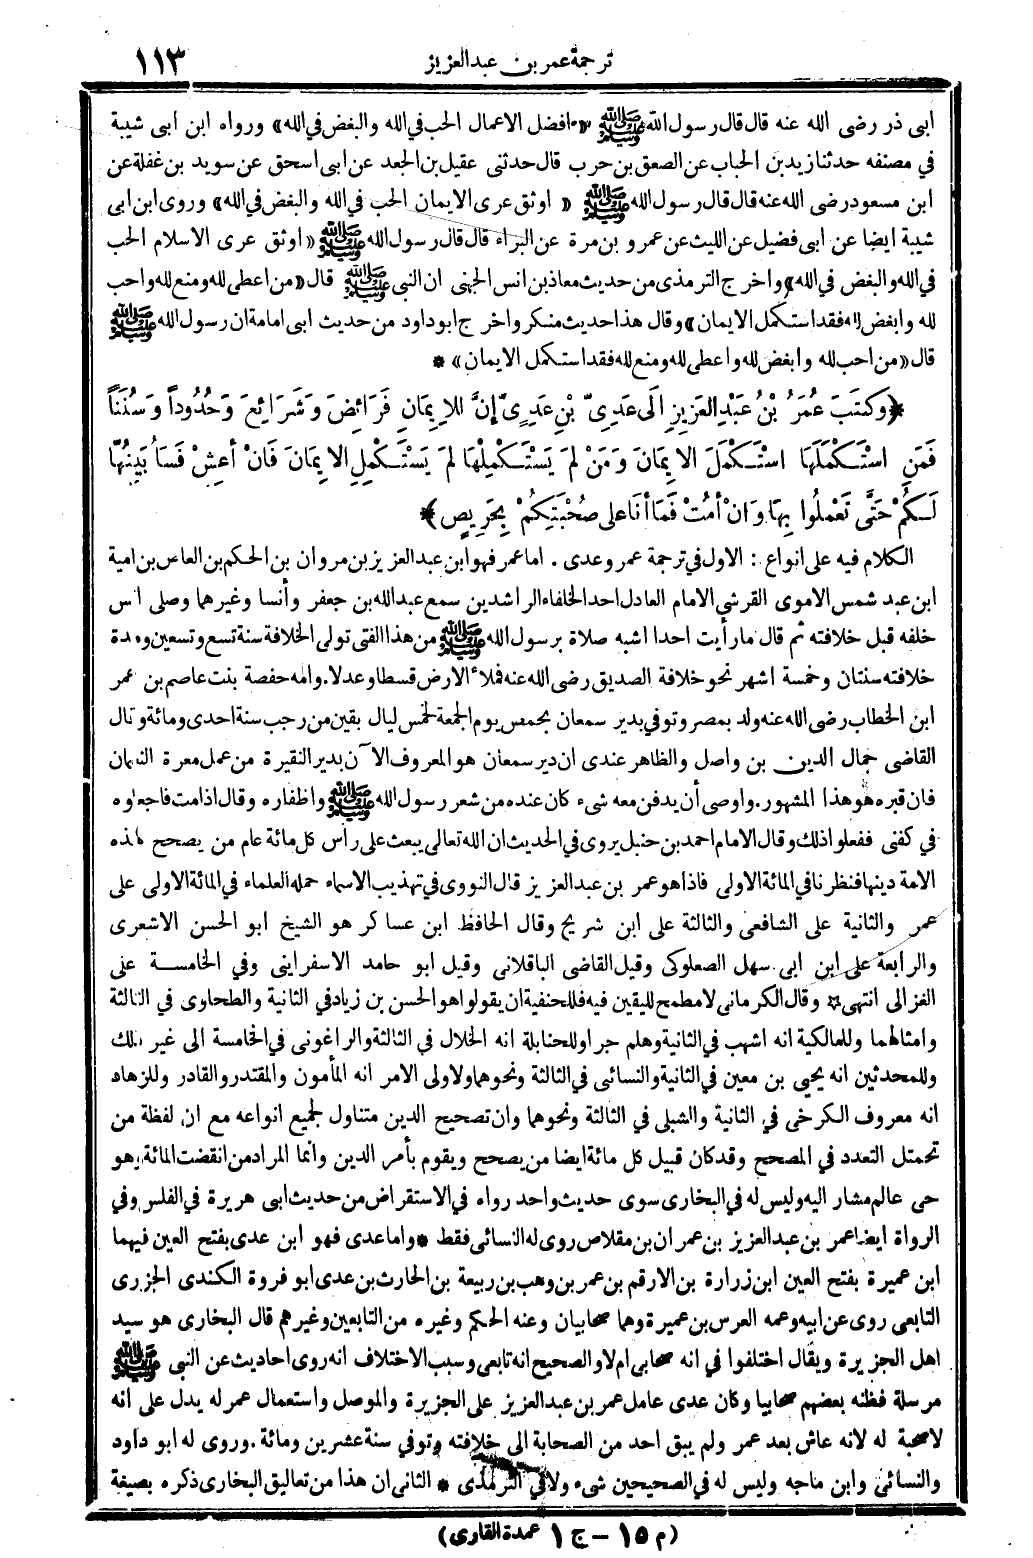 ترجمة عمر بن عبد العزيز ١١٣
ابى ذر رضى الله عنه قال قال رسول الله ﷺ «افضل الاعمال الحب في الله والبغض في الله» ورواه ابن ابى شيبة
في مصنفه حدثنا زيد بن الحباب عن الصعق بن حرب قال حدثنى عقيل بن الجعد عن ابى اسحق عن سويد بن غفلة عن
ابن مسعود رضى الله عنه قال قال رسول الله ﷺ « اوثق عرى الايمان الحب في الله والبغض في الله» وروى ابن ابى
شيبة ايضا عن ابى فضيل عن الليث عن عمرو بن مرة عن البراء قال قال رسول الله ﷺ « اوثق عرى الاسلام الحب
في الله والبغض في الله» واخرج الترمذى من حديث معاذ بن انس الجهنى ان النبى ﷺ قال «من اعطى لله ومنع لله واحب
لله وابغض لله فقد استكمل الايمان» وقال هذا حديث منكر واخرج ابو داود من حديث ابى امامة ان رسول الله ﷺ
قال «من احب لله وابغض لله واعطى لله ومنع لله فقد استكمل الايمان» *
﴿وَكَتَبَ عُمَرُ بْنُ عَبْدِ العَزِيزِ إلَى عَدِىِّ بْنِ عَدِىٍّ إنَّ لِلإِيمَانِ فَرَائِضَ وَشَرَائِعَ وَحُدُوداً وَسُنَناً
فَمَنِ اسْتَكْمَلَهَا اسْتَكْمَلَ الاِيمَانَ وَمَنْ لَمْ يَسْتَكْمِلْهَا لَمْ يَسْتَكْمِلِ الاِيمَانَ فَانْ أعِشْ فَسَأُبَيِّنُهَا
لَكُمْ حَتَّى تَعْمَلُوا بِهَا وَانْ أمُتْ فَمَا أنَا عَلى صُحْبَتِكُمْ بِحَرِيصٍ﴾ *
الكلام فيه على انواع : الاول في ترجمة عمر وعدى . اما عمر فهو ابن عبد العزيز بن مروان بن الحكم بن العاس بن امية
ابن عبد شمس الاموى القرشى الامام العادل احد الخلفاء الراشدين سمع عبد الله بن جعفر وأنسا وغيرهما وصلى انس
خلفه قبل خلافته ثم قال ما رأيت احدا اشبه صلاة برسول الله ﷺ من هذا الفتى تولى الخلافة سنة تسع وتسعين ومدة
خلافته سنتان وخمسة اشهر نحو خلافة الصديق رضى الله عنه فملأ الارض قسطا وعدلا. وامه حفصة بنت عاصم بن عمر
ابن الخطاب رضى الله عنه ولد بمصر وتوفي بدير سمعان بحمص يوم الجمعة لخمس ليال بقين من رجب سنة احدى ومائة وقال
القاضى جمال الدين بن واصل والظاهر عندى ان دير سمعان هو المعروف الآن بدير النقيرة من عمل معرة النعمان
فان قبره هو هذا المشهور. واوصى أن يدفن معه شىء كان عنده من شعر رسول الله ﷺ واظفاره وقال اذا مت فاجعلوه
في كفنى ففعلوا ذلك وقال الامام احمد بن حنبل يروى في الحديث ان الله تعالى يبعث على رأس كل مائة عام من يصحح لهذه
الامة دينها فنظرنا في المائة الاولى فاذا هو عمر بن عبد العزيز قال النووى في تهذيب الاسماء حمله العلماء في المائة الاولى على
عمر والثانية على الشافعى والثالثة على ابن شريح وقال الحافظ ابن عساكر هو الشيخ ابو الحسن الاشعرى
والرابعة على ابن ابى سهل الصعلوكى وقيل القاضى الباقلانى وقيل ابو حامد الاسفراينى وفي الخامسة على
الغزالى انتهى * وقال الكرمانى لا مطمح لليقين فيه فللحنفية ان يقولوا هو الحسن بن زياد في الثانية والطحاوى في الثالثة
وامثالهما وللمالكية انه اشهب في الثانية وهلم جرا وللحنابلة انه الخلال في الثالثة والراغونى في الخامسة الى غير ذلك
وللمحدثين انه يحيى بن معين في الثانية والنسائى في الثالثة ونحوهما ولاولى الامر انه المأمون والمقتدر والقادر وللزهاد
انه معروف الكرخى في الثانية والشبلى في الثالثة ونحوهما وان تصحيح الدين متناول لجميع انواعه مع ان لفظة من
تحتمل التعدد في المصحح وقد كان قبيل كل مائة ايضا من يصحح ويقوم بأمر الدين وانما المراد من انقضت المائة وهو
حى عالم مشار اليه وليس له في البخارى سوى حديث واحد رواه في الاستقراض من حديث ابى هريرة في الفلس وفي
الرواة ايضا عمر بن عبد العزيز بن عمران بن مقلاص روى له النسائى فقط * واما عدى فهو ابن عدى بفتح العين فيهما
ابن عميرة بفتح العين ابن زرارة بن الارقم بن عمر بن وهب بن ربيعة بن الحارث بن عدى ابو فروة الكندى الجزرى
التابعى روى عن ابيه وعمه العرس بن عميرة وهما صحابيان وعنه الحكم وغيره من التابعين وغيرهم قال البخارى هو سيد
اهل الجزيرة ويقال اختلفوا في انه صحابى ام لا والصحيح انه تابعى وسبب الاختلاف انه روى احاديث عن النبى ﷺ
مرسلة فظنه بعضهم صحابيا وكان عدى عامل عمر بن عبد العزيز على الجزيرة والموصل واستعمال عمر له يدل على انه
لا صحبة له لانه عاش بعد عمر ولم يبق احد من الصحابة الى خلافته وتوفي سنة عشرين ومائة. وروى له ابو داود
والنسائى وابن ماجه وليس له في الصحيحين شىء ولا في الترمذى * الثانى ان هذا من تعاليق البخارى ذكره بصيغة
(م ١٥ – ج ١ عمدة القارى)